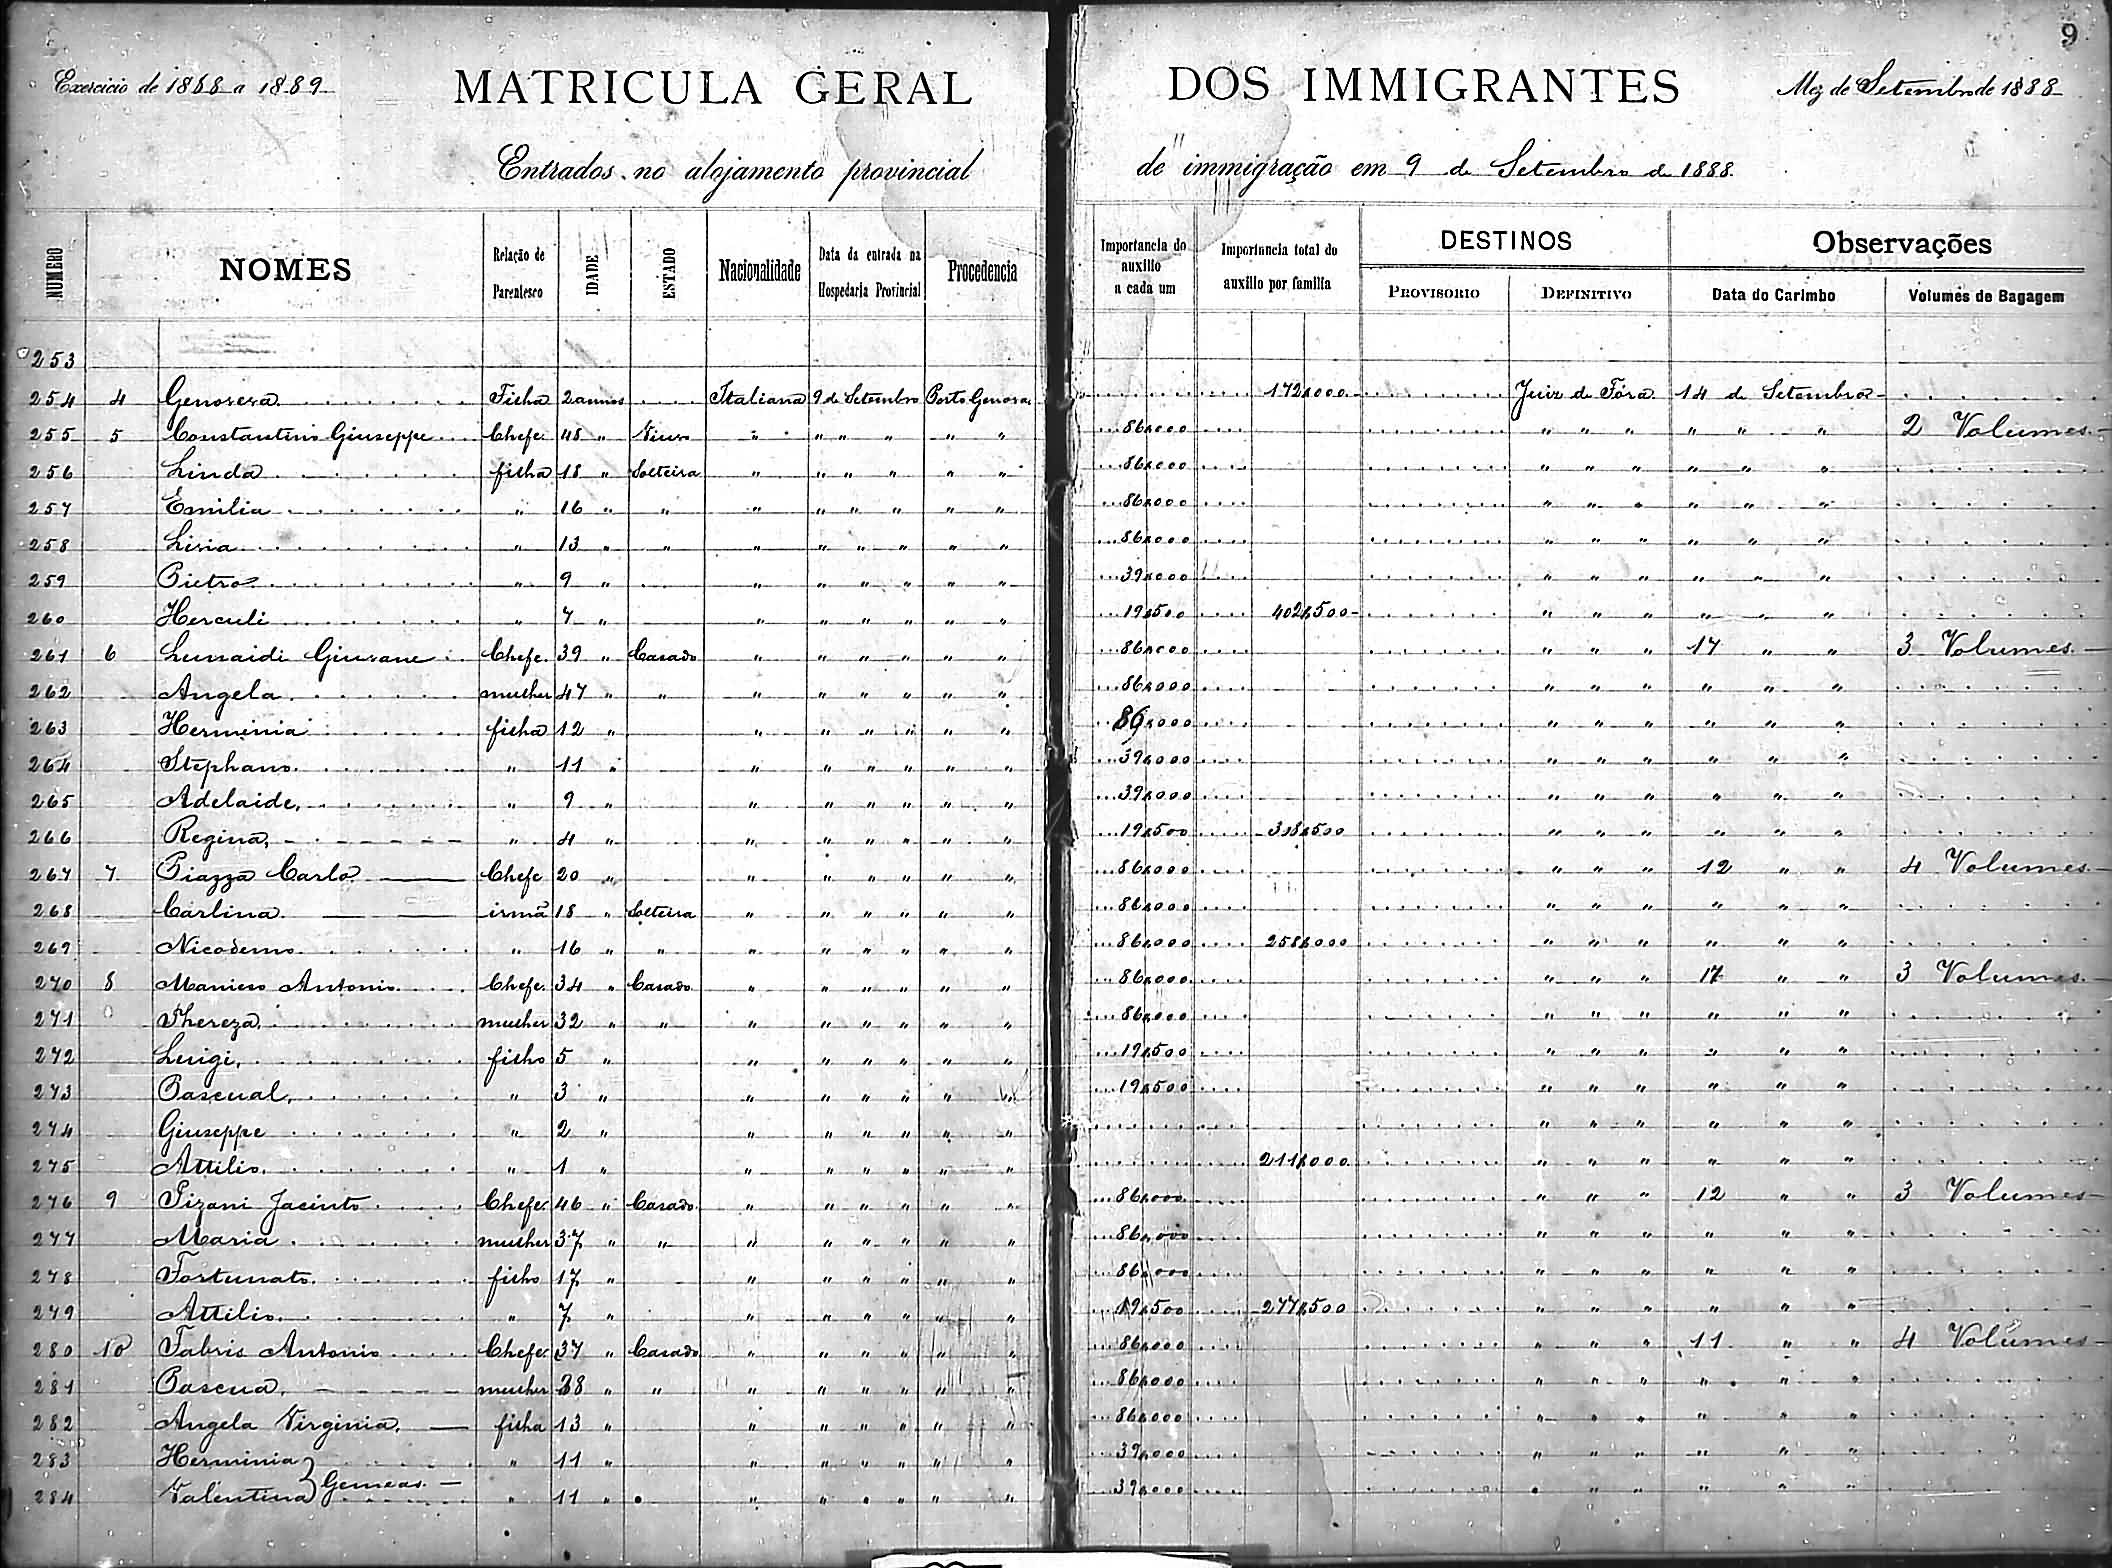 9
Exercicio de 1888 a 1889 MATRICULA GERAL DOS IMMIGRANTES Mez de Setembro de 1888
Entrados no alojamento provincial de immigração em 9 de Setembro de 1888.
NUMERO NOMES Relação de Parentesco IDADE ESTADO Nacionalidade Data da entrada na Hospedaria Provincial Procedencia Importancia do auxilio a cada um Importancia total do auxilio por familia DESTINOS PROVISORIO DEFINITIVO Observações Data do Carimbo Volumes de Bagagem
253
254 4 Genovera Filha 2 annos Italiana 9 de Setembro Porto Genova 172$000 Juiz de Fóra 14 de Setembro
255 5 Constantino Giuseppe Chefe 48 " Viuvo " " " " " " 86$000 " " " " " " 2 Volumes
256 Linda filha 18 " Solteira " " " " " " 86$000 " " " " " "
257 Emilia " 16 " " " " " " " " 86$000 " " " " " "
258 Livia " 13 " " " " " " " " 86$000 " " " " " "
259 Pietro " 9 " " " " " " " 39$000 " " " " " "
260 Herculi " 7 " " " " " " " 19$500 402$500 " " " " " "
261 6 Lunaidi Chefe 39 " Casado " " " " " " 86$000 " " " 17 " " 3 Volumes
262 Angela mulher 47 " " " " " " " " 86$000 " " " " " "
263 Herminia filha 12 " " " " " " " 86$000 " " " " " "
264 Stephano " 11 " " " " " " " 39$000 " " " " " "
265 Adelaide " 9 " " " " " " " 39$000 " " " " " "
266 Regina " 4 " " " " " " " 19$500 " " " " " "
267 7 Piazza Carlo Chefe 20 " " " " " " " 86$000 " " " 12 " " 4 Volumes
268 Carlina irmã 18 " Solteira " " " " " " 86$000 " " " " " "
269 Nicodemo " 16 " " " " " " " " 86$000 258$000 " " " " " "
270 8 Maniero Antonio Chefe 34 " Casado " " " " " " 86$000 " " " 17 " " 3 Volumes
271 Thereza mulher 32 " " " " " " " " 86$000 " " " " " "
272 Luigi filho 5 " " " " " " " 19$500 " " " " " "
273 Pascual " 3 " " " " " " " 19$500 " " " " " "
274 Giuseppe " 2 " " " " " " " " " " " " "
275 Attilio " 1 " " " " " " " 211$000 " " " " " "
276 9 Pizani Jacinto Chefe 46 " Casado " " " " " " 86$000 " " " 12 " " 3 Volumes
277 Maria mulher 37 " " " " " " " " 86$000 " " " " " "
278 Fortunato filho 17 " " " " " " " 86$000 " " " " " "
279 Attilio " 7 " " " " " " " 19$500 277$500 " " " " " "
280 10 Fabris Antonio Chefe 37 " Casado " " " " " " 86$000 " " " 11 " " 4 Volumes
281 Pascua mulher 38 " " " " " " " " 86$000 " " " " " "
282 Angela Virginia filha 13 " " " " " " " 86$000 " " " " " "
283 Herminia " 11 " " " " " " " 39$000 " " " " " "
Gemeas
284 Valentina " 11 " " " " " " " 39$000 " " " " " "